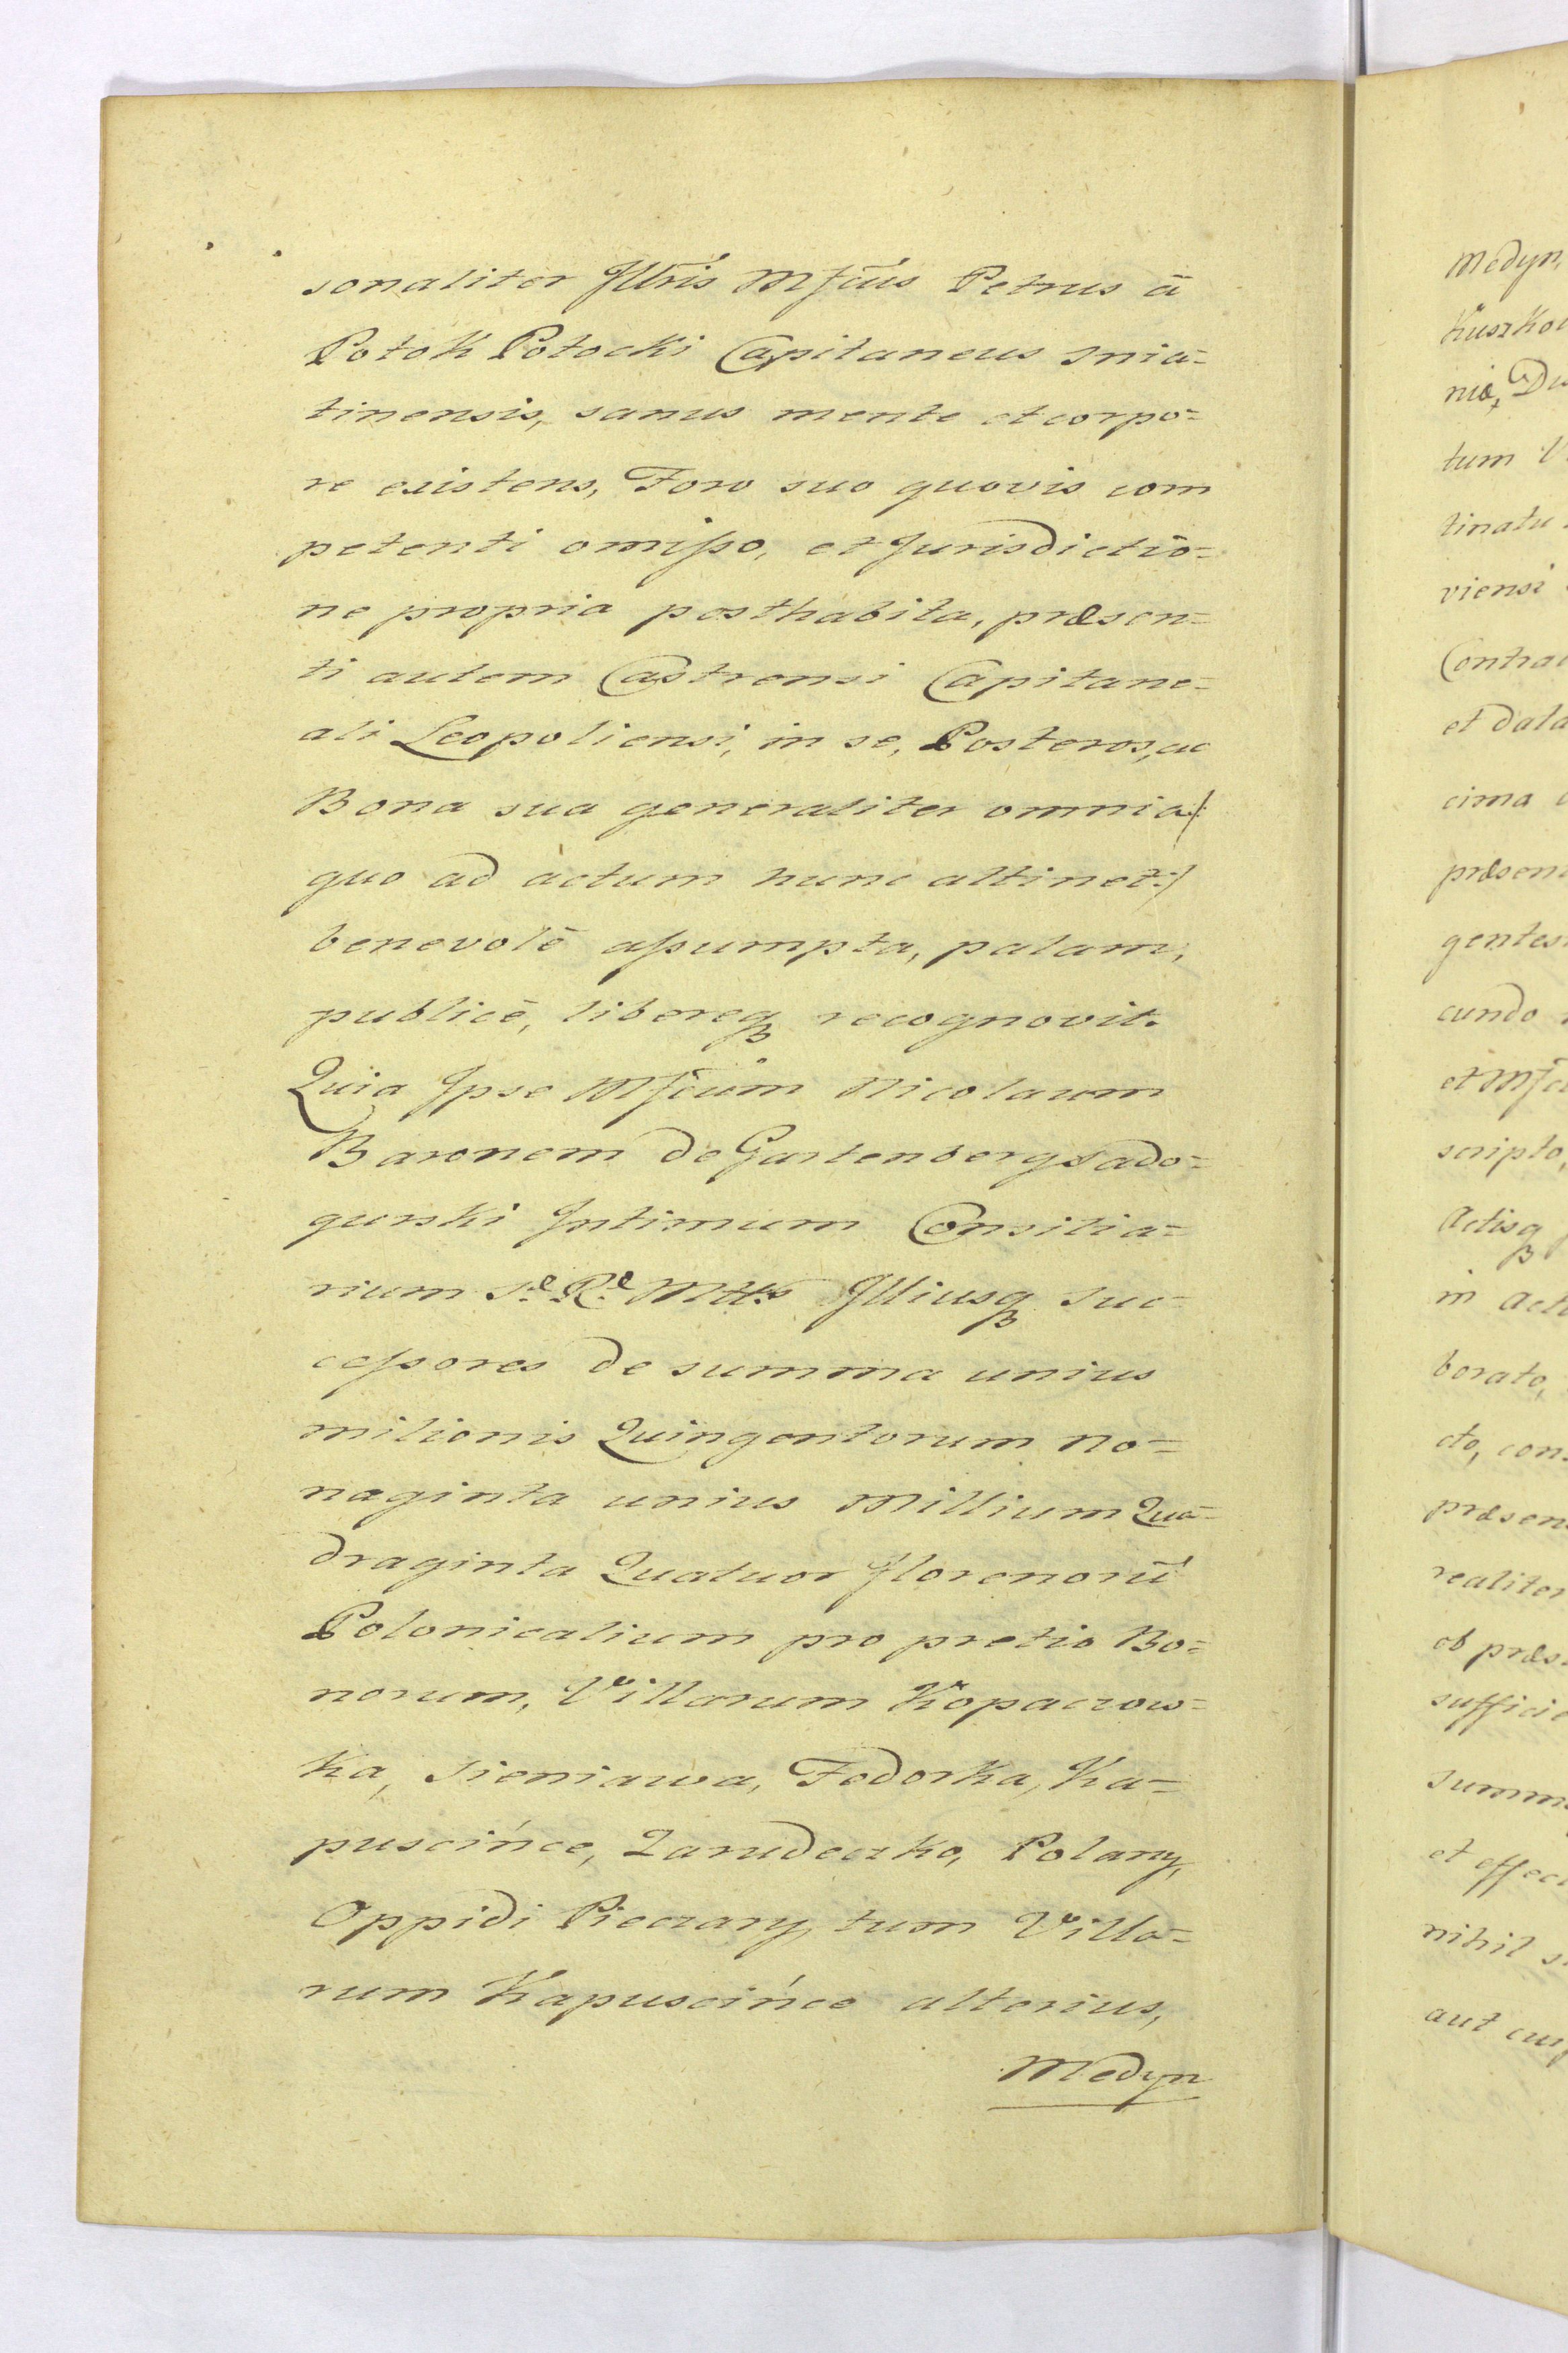 sonaliter Jllris Mfcus Petrus à
Potok Potocki Capitaneus Snia=
tinensis, sanus mente et corpo=
re existens, Foro suo quovis com
petenti omisso, et Jurisdictio=
ne propria posthabita, præsen=
ti autem Castrensi Capitane=
ali Leopoliensi, in se, Posteros, ac
Bona sua generaliter omnia /:
quo ad actum hunc attinet :/
benevolè assumpta, palam,
publicè, libereq recognovit.
Quia Jpse Mfcum Nicolaum
Baronem de Gartenberg Sado=
gurski Jntimum Consilia=
rium S. R. Mttis Jlliusq suc=
cessores de summa unius
milionis Quingentorum no=
naginta unius Millium Qua=
draginta Quatuor florenorū
Polonicalium pro pretio Bo=
norum, Villarum Kopaczow=
ka, Sieniawa, Fedorka, Ka=
puscińce, Zarudeczko, Polany,
Oppidi Pieczary, tum Villa=
rum Kapuscińce alterius,
Medyn
Medyn,
tum
viensi
et data
cima
gentes
cundo
scripto,
Actisq
in Act
borato,
cto, con
præsen
realiter
ob præs
suffici
Summ
et effec
nihil